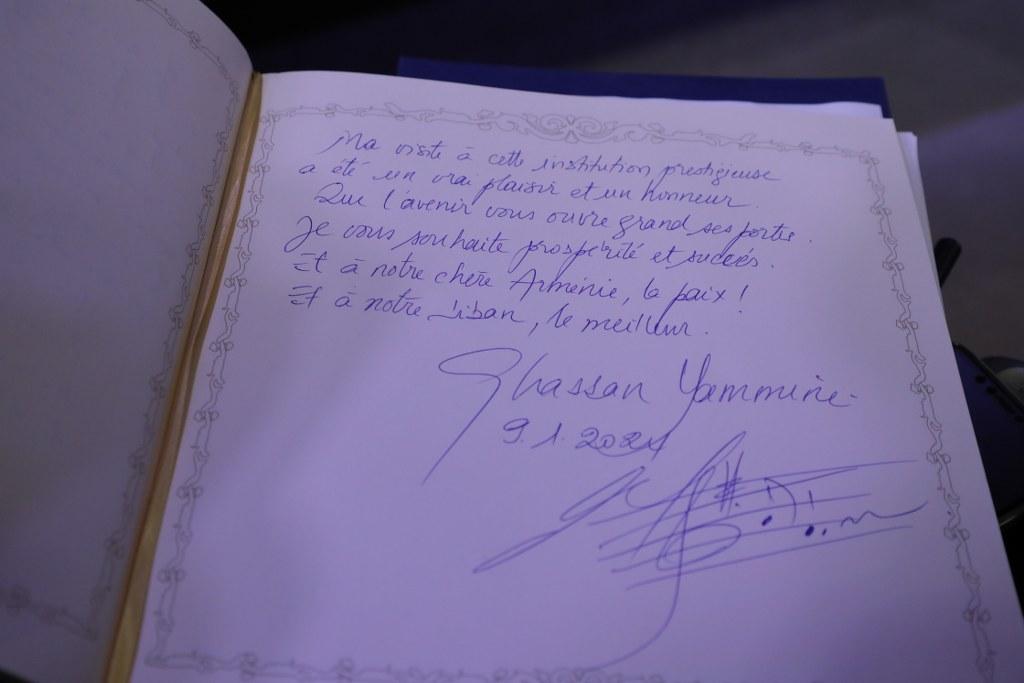 Ma visite à cette institution prestigieuse
a été un vrai plaisir et un honneur.
Que l'avenir vous ouvre grand ses portes.
Je vous souhaite prospérité et succès.
Et à notre chère Arménie, la paix !
Et à notre Liban, le meilleur.
Ghassan Yammine
9.1.2024